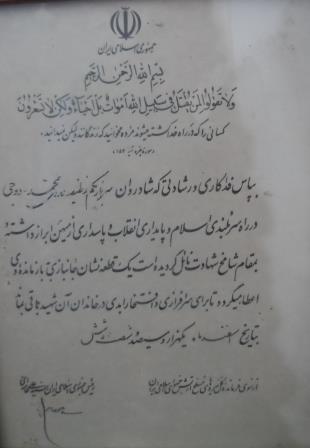 جمهوری اسلامی ایران
بسم الله الرحمن الرحیم
ولا تقولوا لمن یقتل فی سبیل الله اموات بل احیاء ولکن لا تشعرون
کسانی را که در راه خدا کشته میشوند مرده نخوانید که زنده‌اند ولیکن شما نمیدانید.
سوره بقره آیه ۱۵۴
بپاس فداکاری و رشادتی که شادروان سرباز یکم وظیفه
در راه سربلندی اسلام و پایداری انقلاب و پاسداری از میهن ابراز داشته و
بمقام شامخ شهادت نائل گردیده است یک قطعه نشان جانبازی به بازمانده وی
اعطا میگردد تا برای سرفرازی و افتخار ابدی در خاندان آن شهید باقی بماند
بتاریخ اسفند ماه یکهزار و سیصد و شصت و شش
رئیس جمهوری اسلامی ایران